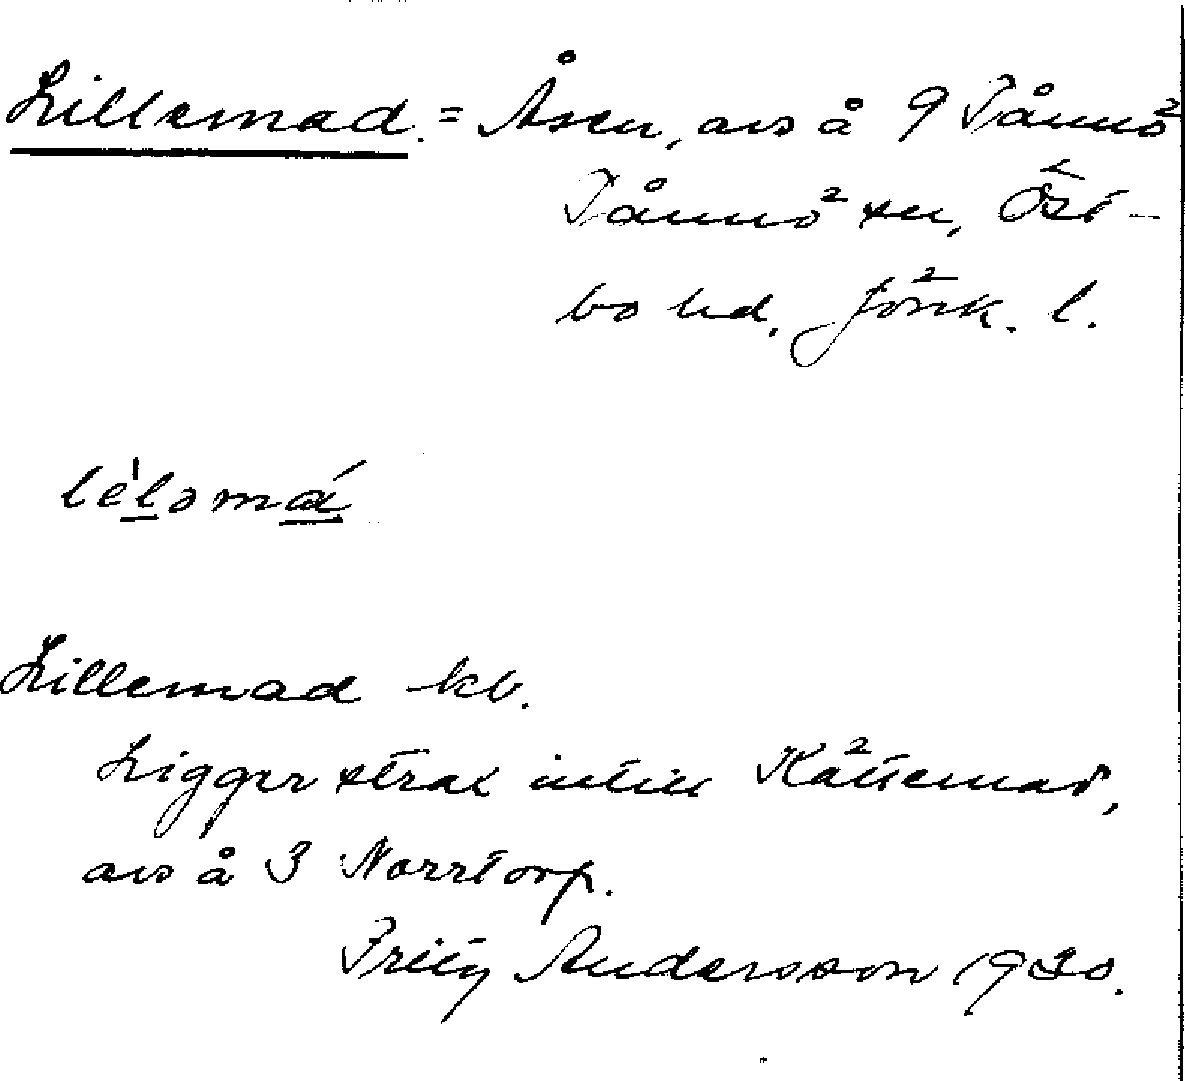 Lillemad. = Åsen, avs å 9 Tånnö
Tånnö sn, Öst-
bo hd, Jönk. l.
lèləmá
Lillemad kb.
Ligger strax intill Kättemad,
avs å 3 Norrtorp.
Fritz Andersson 1930.